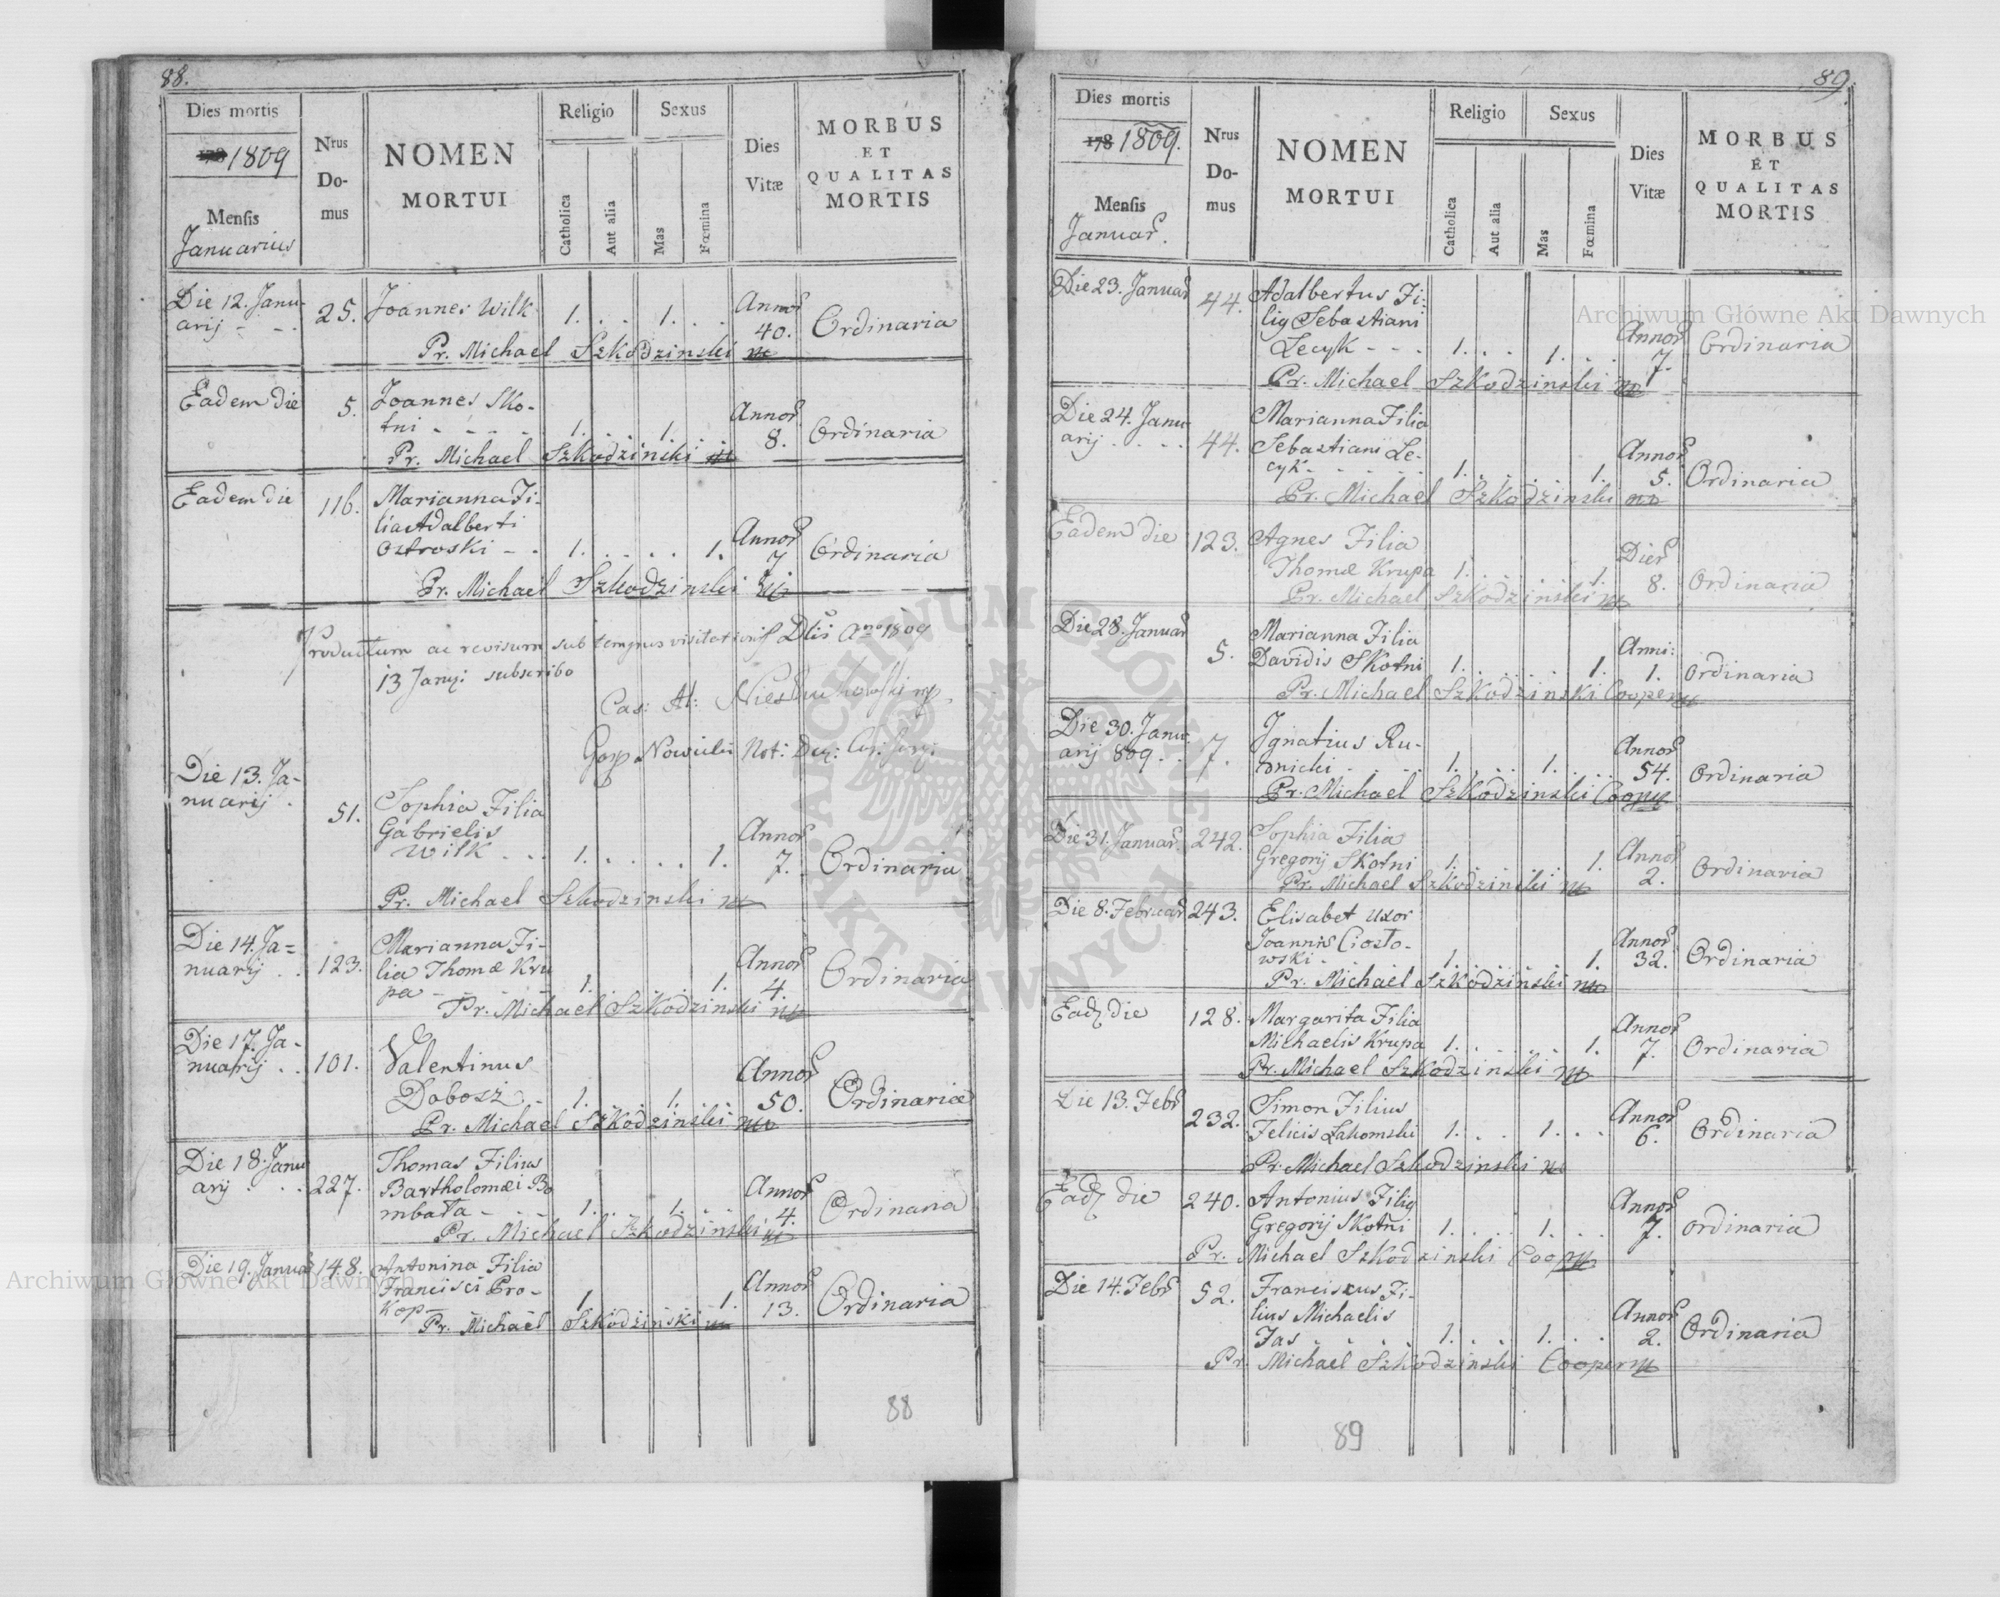 88.
Dies mortis
178 1809
Mensis
Januarius
Nrus
Do-
mus
NOMEN
MORTUI
Religio
Catholica
Aut alia
Sexus
Mas
Fœmina
Dies
Vitæ
MORBUS
ET
QUALITAS
MORTIS
Die 12. Janu-
arij - - .
25.
Joannes Wilk
1. . . 1. . .
Annor
40.
Ordinaria
Pr. Michael Szkodzinski
Eadem die
5.
Joannes Sko-
tni - - - -
1. . . 1. . .
Annor
8.
Ordinaria
Pr. Michael Szkodzinski
Eadem die
116.
Marianna Fi-
lia Adalberti
Ostroski - .
1. . . . . 1.
Annor
7
Ordinaria
Pr. Michael Szkodzinski
Productum ac revisum sub tempus visitationis Dlis Ano 1809
13 Janrii subscribo
Cas: At:
Gasp Nowicki Not:
Die 13. Ja-
nuarij .
51.
Sophia Filia
Gabrielis
Wilk . . .
1. . . . . 1.
Annor
7.
Ordinaria
Pr. Michael Szkodzinski
Die 14. Ja=
nuarij . .
123.
Marianna Fi-
lia Thomæ Kru
pa - - -
1. . . . . 1.
Annor
4.
Ordinaria
Pr. Michael Szkodzinski
Die 17. Ja-
nuarij . .
101.
Valentinus
Dobosz . -
1. . . 1. . .
Annor
50.
Ordinaria
Pr. Michael Szkodzinski
Die 18. Janu
arij . . .
227.
Thomas Filius
Bartholomæi Bo
mbała - . .
1. . . 1. . .
Annor
4.
Ordinaria
Pr. Michael Szkodzinski
Die 19. Januar
148.
Antonina Filia
Francisci Pro-
kop -
1. . . . . 1.
Annor
13.
Ordinaria
Pr. Michael Szkodzinski
88
89.
Dies mortis
178 1809.
Mensis
Januar.
Nrus
Do-
mus
NOMEN
MORTUI
Religio
Catholica
Aut alia
Sexus
Mas
Fœmina
Dies
Vitæ
MORBUS
ET
QUALITAS
MORTIS
Die 23. Januar
44.
Adalbertus Fi-
lig Sebastiani
Lecyk - - .
1. . . 1. . .
Annor
7.
Ordinaria
Pr. Michael Szkodzinski
Die 24. Janu
arij . . . .
44.
Marianna Filia
Sebastiani Le-
cyk - . . . .
1. . . . . 1.
Annor
5.
Ordinaria
Pr. Michael Szkodzinski
Eadem die
123.
Agnes Filia
Thomæ Krupa
1. . . . . 1.
Dier
8.
Ordinaria
Pr. Michael Szkodzinski
Die 28. Januar
5.
Marianna Filia
Davidis Skotni
1. . . . . 1.
Anni:
1.
Ordinaria
Pr. Michael Szkodzinski Cooper
Die 30. Janu
arij 809 . .
7.
Ignatius Ru-
dnicki . . . .
1. . . 1. . .
Annor
54.
Ordinaria
Pr. Michael Szkodzinski Cooper
Die 31. Januar.
242.
Sophia Filia
Gregorij Skotni
1. . . . . 1.
Annor
2.
Ordinaria
Pr. Michael Szkodzinski
Die 8. Februar
243.
Elisabet Uxor
Joannis Ciosto-
wski -
1. . . . . 1.
Annor
32.
Ordinaria
Pr. Michael Szkodzinski
Ead die
128.
Margarita Filia
Michaelis Krupa
1. . . . . 1.
Annor
7.
Ordinaria
Pr. Michael Szkodzinski
Die 13. Febr
232.
Simon Filius
Felicis Lakomski
1. . . 1. . .
Annor
6.
Ordinaria
Pr. Michael Szkodzinski
Ead die
240.
Antonius Filig
Gregorij Skotni
1. . . . 1. . .
Annor
7.
Ordinaria
Pr. Michael Szkodzinski Coop
Die 14. Febr
52.
Franciscus Fi-
lius Michaelis
Jas . . . .
1. . . 1. . .
Annor
2.
Ordinaria
Pr. Michael Szkodzinski Cooper
89
Archiwum Główne Akt Dawnych
Archiwum Główne Akt Dawnych
ARCHIWUM GŁÓWNE AKT DAWNYCH